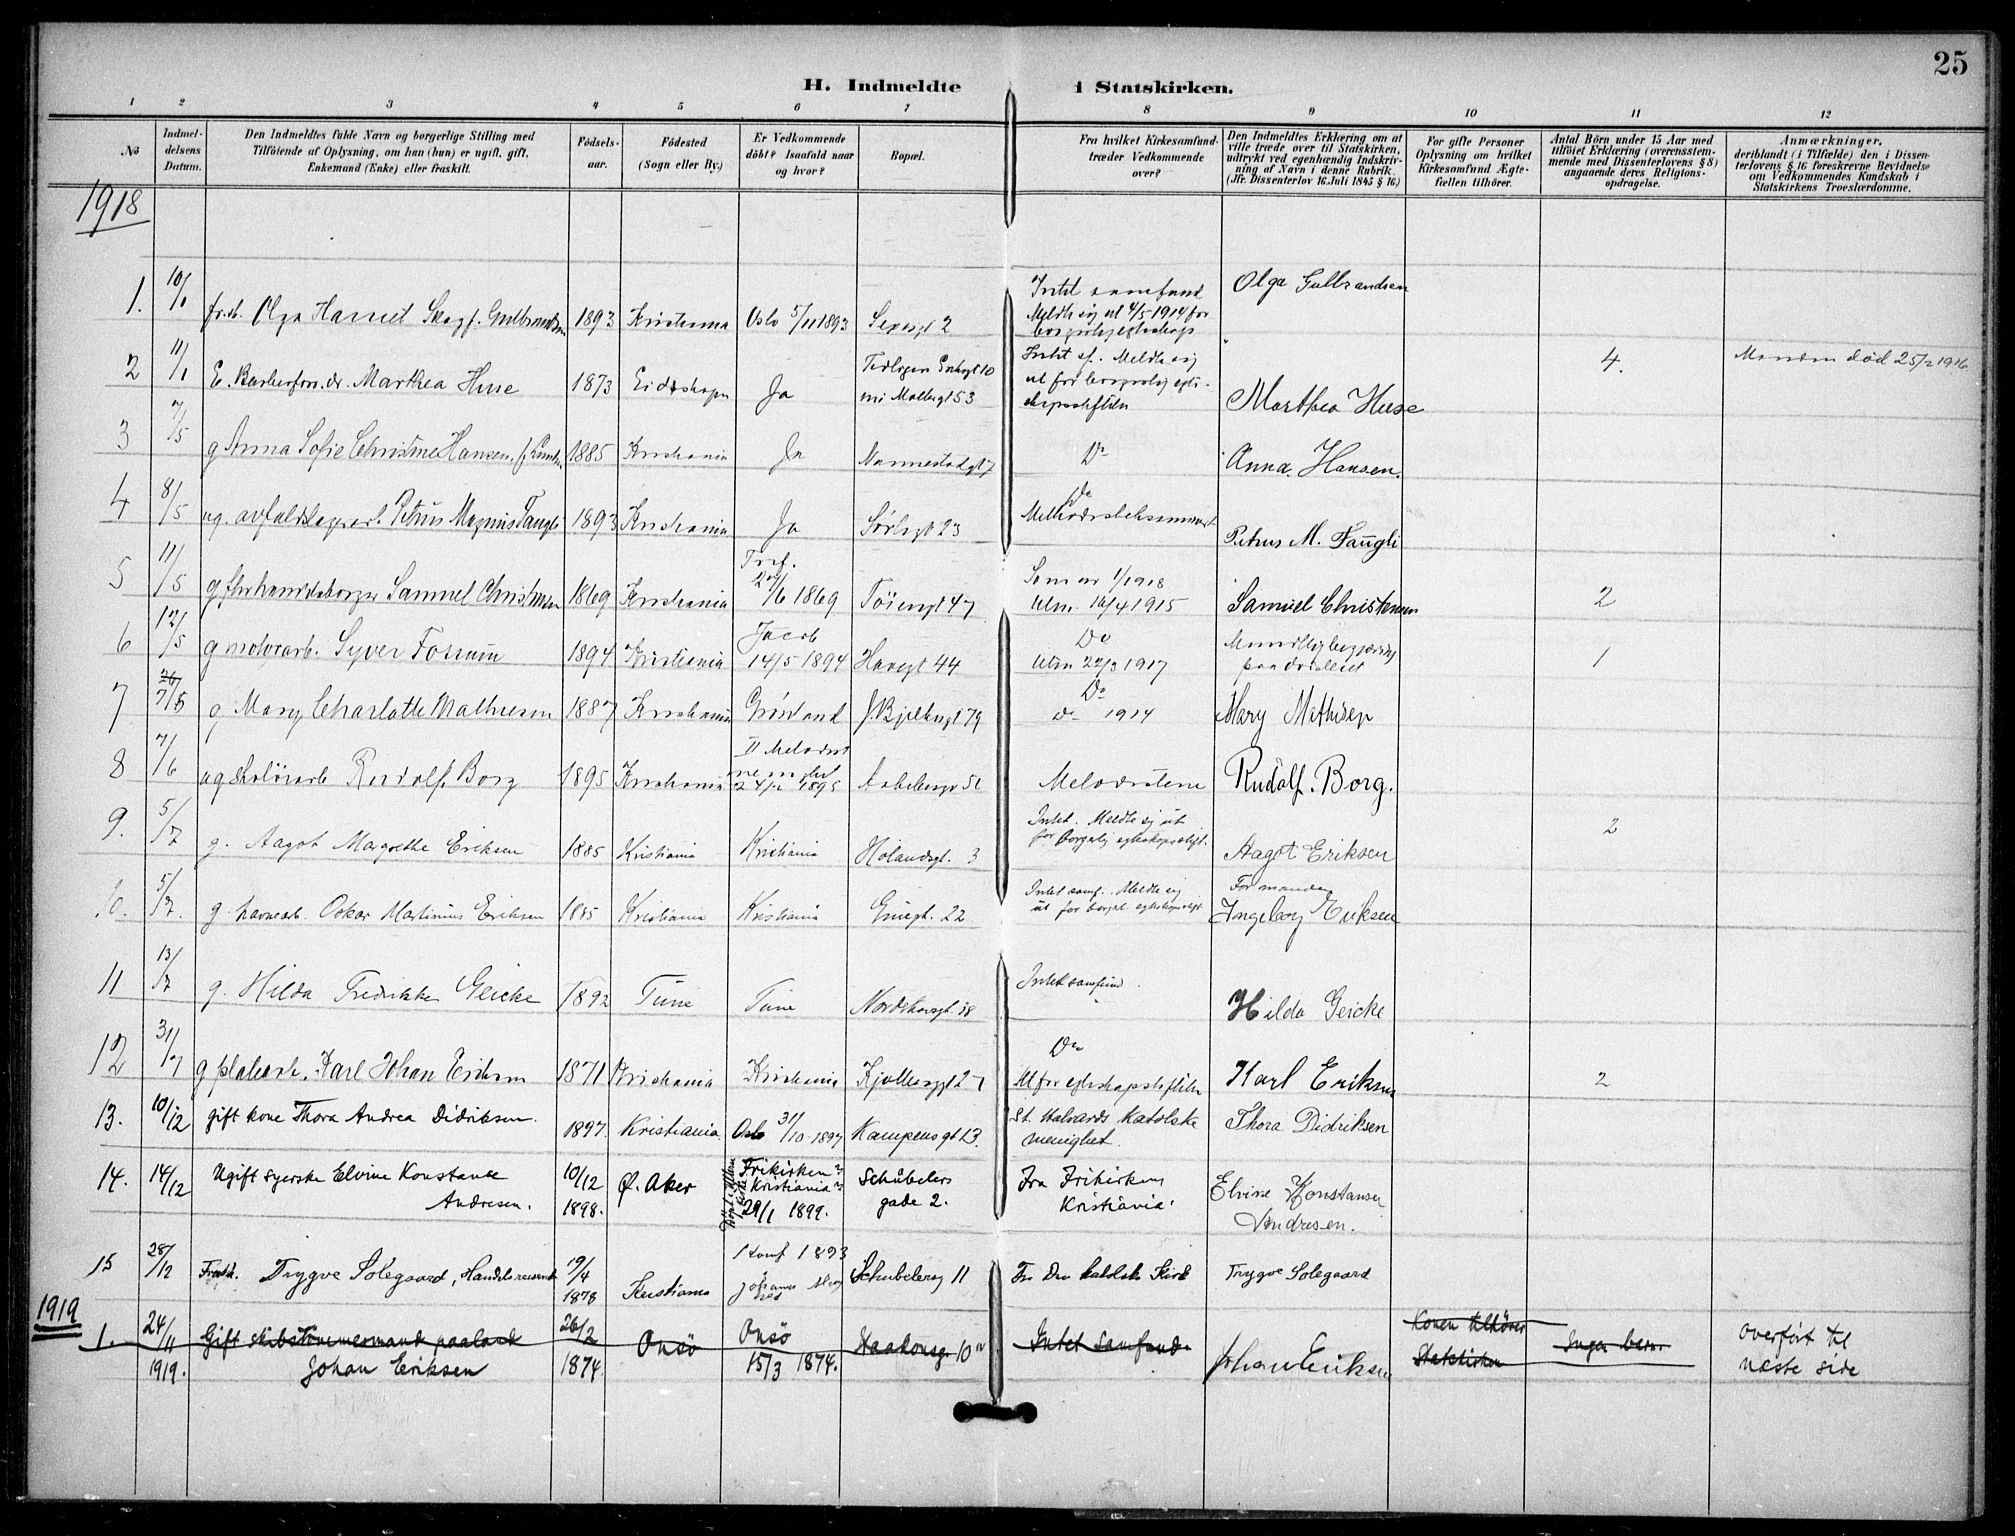 25
H. Indmeldte i Statskirken.
1 2 3 4 5 6 7 8 9 10 11 12
No
Indmel-
delsens
Datum.
Den Indmeldtes fulde Navn og borgerlige Stilling med
Tilföiende af Oplysning, om han (hun) er ugift, gift,
Enkemand (Enke) eller fraskilt.
Födsels-
aar.
Födested
(Sogn eller By.)
Er Vedkommende
döbt? Isaafald naar
og hvor?
Bopæl.
Fra hvilket Kirkesamfund
træder Vedkommende
over?
Den Indmeldtes Erklæring om at
ville træde over til Statskirken,
udtrykt ved egenhændig Indskriv-
ning af Navn i denne Rubrik.
(Jfr. Dissenterlov 16. Juli 1845 § 16.)
For gifte Personer
Oplysning om hvilket
Kirkesamfund Ægte-
fællen tilhører.
Antal Börn under 15 Aar med
tilföiet Erklæring (overensstem-
mende med Dissenterlovens § 8)
angaaende deres Religions-
opdragelse.
Anmærkninger,
deriblandt (i Tilfælde) den i Dissen-
terlovens § 16 foreskrevne Bevidnelse
om Vedkommendes Kundskab i
Statskirkens Troeslærdomme.
1918
1. 10/1 Olga Skog f. Gulbrandsen 1893 Kristiania Oslo 5/11 1893
Intet samfund
Meldte sig ut 4/5 1914 for
borgerlig egteskap
Olga Gulbrandsen
2 11/1 E. Marthea Huse 1873 Eidskogen Ja
Intet sf. Meldte sig
ut for borgerlig egte-
skapsstiftelse
Marthea Huse 4. Manden död 25/2 1916
3 7/5 g Anna Sofie Christine Hansen 1885 Kristiania Ja Mannestadgt 7 Do Anna. Hansen.
4 8/5 ug. Petrus Magnus Faugli 1893 Kristiania Ja Sörligt 23
Do
Petrus M. Faugli
5 11/5 g Samuel Christensen 1869 Kristiania
1869 Töiengt 47
Som nr 1/1918
Utm. 16/4 1915 Samuel Christensen 2
6 12/5 g motorarb. Syver Fossum 1894 Kristiania
Jacob
14/5 1894 Havegt 44
Do
Utm 22/3 1917
Mundtlig begjæring
1
7 g Mary Charlotte Mathiesen 1887 Kristiania Grönland J. Bjelkesgt 79
Do
do 1914 Mary Mathisen
8 7/6 ug Rudolf Borg 1895 Kristiania
II Metodist
menighet
1895
Metodisterne Rudolf. Borg.
9. 5/7 g. Aagot Margrethe Eriksen 1885 Kristiania Kristiania Hölandsgt. 3
Intet. Meldte sig ut
for borgerlig
Aagot Eriksen 2
10. 5/7. g. havnearb. Oskar Martinius Eriksen 1885 Kristiania Kristiania 22
Intet samf. Meldte sig
ut for borgerl.
For manden
Ingeborg Eriksen
11 13/7 g. Hilda Fredrikke Geicke 1892 Tune Tune
Intet samfund.
Hilda Geicke
12 31/7 g Karl Johan Eriksen 1871 Kristiania Kristiania
Do
Ut for egteskapsstiftelse Karl Eriksen 2
13. 10/12 gift kone Thora Andrea Didriksen. 1897. Kristiania. Oslo 31/10 1897 Kampensgt 13.
St. Halvards katolske
menighet. Thora Didriksen
14. 14/12 Ugift syerske Elvine Konstanse
Andresen.
10/12
1898. Ø. Aker
Frikirken
Kristiania
29/1 1899.
Schübelers
gade 2.
Fra Frikirken
Kristiania.
Elvine Konstanse
Andresen.
15 28/12 Trygve Solegaard, Handelsreisende
9/4
1878 Kristiania
1893
Schubelersg 11 Fra Den katolske Kirke Trygve Solegaard
1919
1. 24/11
1919. Gift skibstømmermand
Johan Eriksen
26/2
1874. Onsö
Onsö
15/3 1874. Haakonsg. 10 IV Intet samfund Johan Eriksen
Konen tilhörer
Statskirken
Ingen barn.
overfört til
næste side